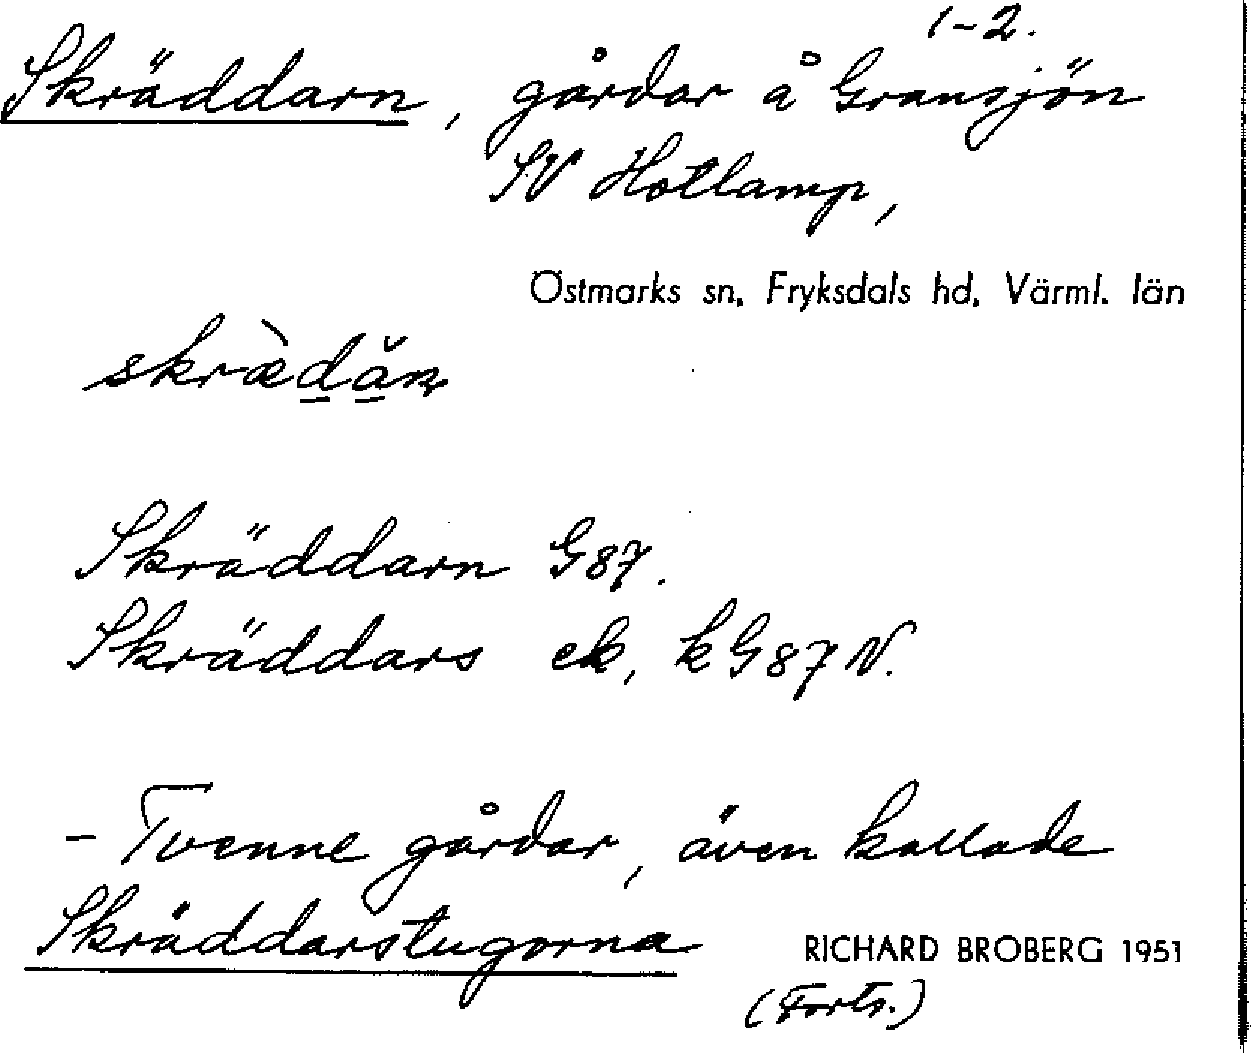 1-2.
Skräddarn, gårdar å Gransjön
SV Hotlamp,
Östmarks sn, Fryksdals hd, Värml. län
skræ̀dăn
Skräddarn G87.
Skräddars ek, kG87N.
- Tvenne gårdar, även kallade
Skräddarstugorna
RICHARD BROBERG 1951
(Forts.)